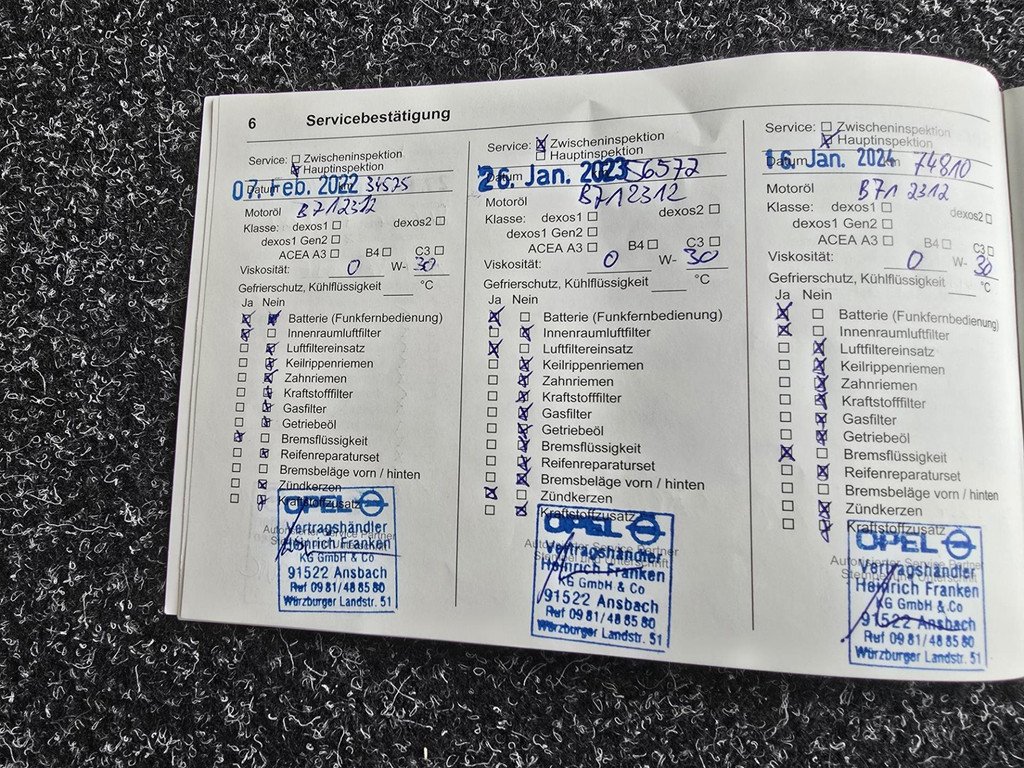 6 Servicebestätigung
Service: Zwischeninspektion
Hauptinspektion
07. Feb. 2022 34525
Datum km
Motoröl B712312
Klasse: dexos1 dexos2
dexos1 Gen2
ACEA A3 B4 C3
Viskosität: 0 W- 30
Gefrierschutz, Kühlflüssigkeit °C
Ja Nein
Batterie (Funkfernbedienung)
Innenraumluftfilter
Luftfiltereinsatz
Keilrippenriemen
Zahnriemen
Kraftstofffilter
Gasfilter
Getriebeöl
Bremsflüssigkeit
Reifenreparaturset
Bremsbeläge vorn / hinten
Zündkerzen
Kraftstoffzusatz
OPEL
Vertragshändler
Heinrich Franken
KG GmbH & Co
91522 Ansbach
Ruf 09 81/48 85 80
Würzburger Landstr. 51
Service: Zwischeninspektion
Hauptinspektion
26. Jan. 2023 56572
Datum
Motoröl B712312
Klasse: dexos1 dexos2
dexos1 Gen2
ACEA A3 B4 C3
Viskosität: 0 W- 30
Gefrierschutz, Kühlflüssigkeit °C
Ja Nein
Batterie (Funkfernbedienung)
Innenraumluftfilter
Luftfiltereinsatz
Keilrippenriemen
Zahnriemen
Kraftstofffilter
Gasfilter
Getriebeöl
Bremsflüssigkeit
Reifenreparaturset
Bremsbeläge vorn / hinten
Zündkerzen
Kraftstoffzusatz
OPEL
Vertragshändler
Heinrich Franken
KG GmbH & Co
91522 Ansbach
Ruf 09 81/48 85 80
Würzburger Landstr. 51
Service: Zwischeninspektion
Hauptinspektion
16. Jan. 2024 74810
Datum km
Motoröl B71 2312
Klasse: dexos1 dexos2
dexos1 Gen2
ACEA A3 B4 C3
Viskosität: 0 W- 30
Gefrierschutz, Kühlflüssigkeit °C
Ja Nein
Batterie (Funkfernbedienung)
Innenraumluftfilter
Luftfiltereinsatz
Keilrippenriemen
Zahnriemen
Kraftstofffilter
Gasfilter
Getriebeöl
Bremsflüssigkeit
Reifenreparaturset
Bremsbeläge vorn / hinten
Zündkerzen
Kraftstoffzusatz
OPEL
Vertragshändler
Heinrich Franken
KG GmbH & Co
91522 Ansbach
Ruf 09 81/48 85 80
Würzburger Landstr. 51